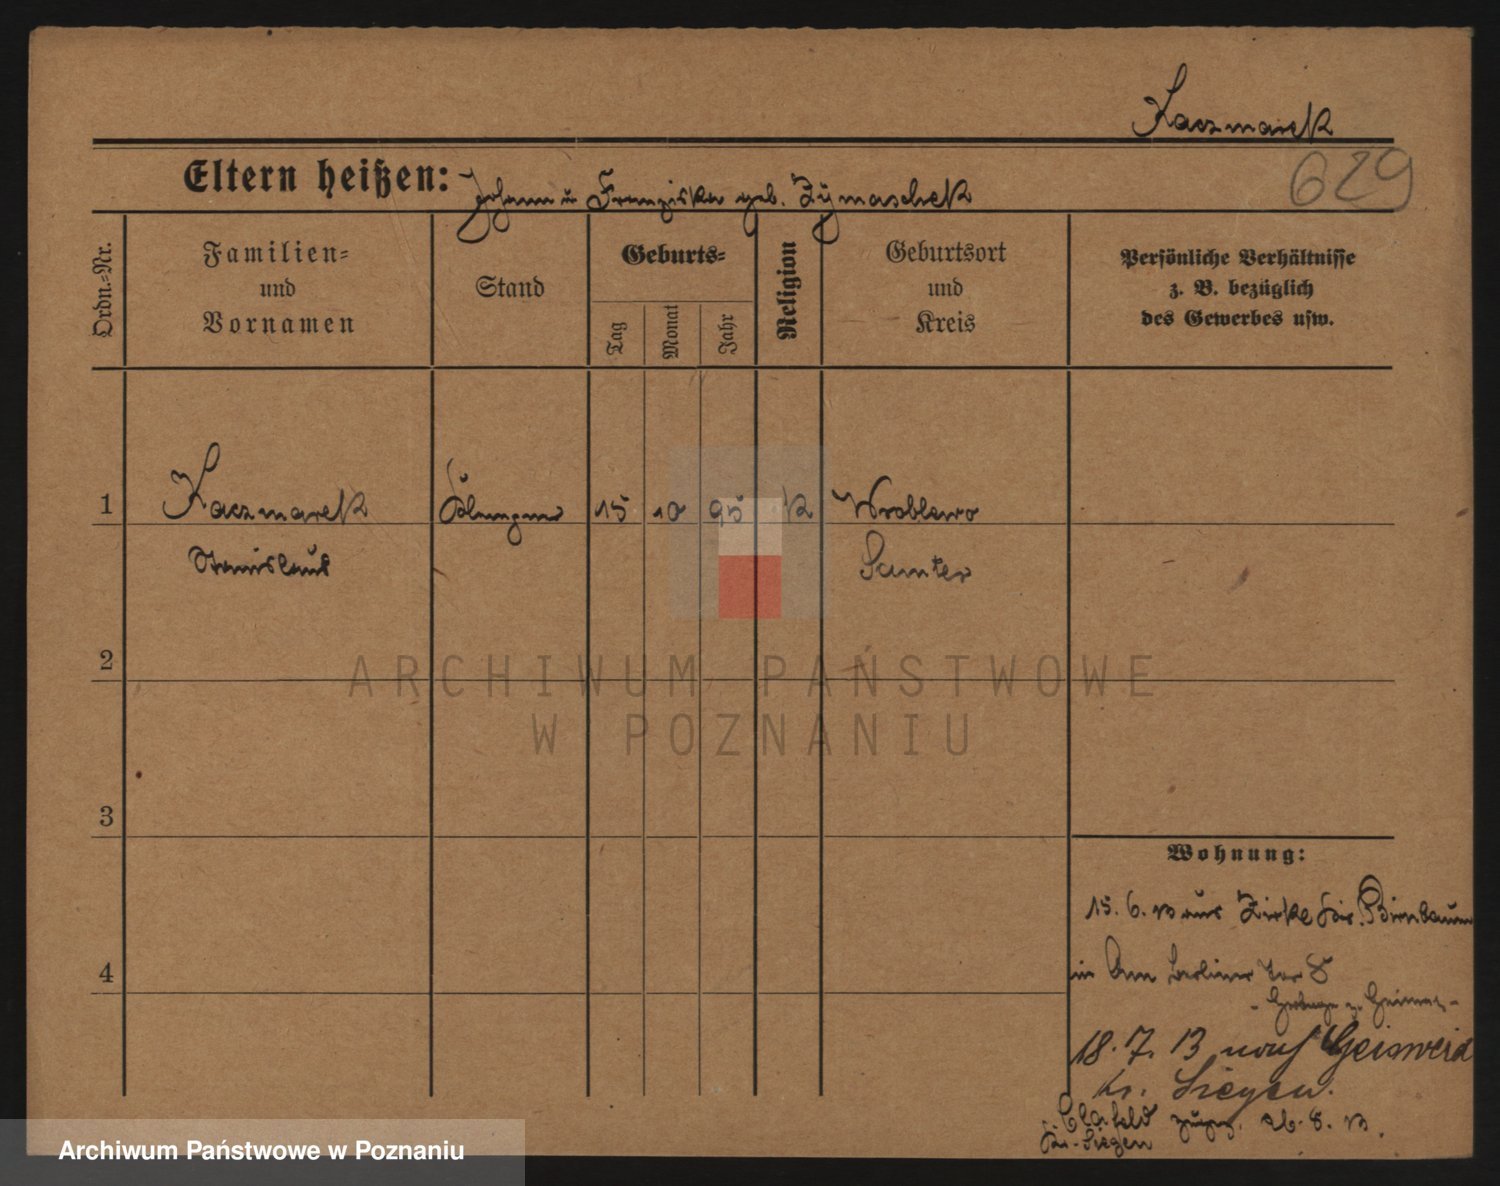 Kaczmarek
629
Eltern heißen: Johann u Franziska geb. Zymaschek
Ordn.-Nr.
Familien-
und
Vornamen
Stand
Geburts-
Tag
Monat
Jahr
Religion
Geburtsort
und
Kreis
Persönliche Verhältnisse
z. B. bezüglich
des Gewerbes usw.
1 Kaczmarek 15 10 95 K Wroblewo
Stanislaus Samter
2
3
4
Wohnung:
15. 6. 13 aus Zirke Kr. Birnbaum
in Am Berliner Tor 8
18. 7. 13 nach Geisweid
Kr. Siegen.
Clafeld 26. 8. 13.
Kr. Siegen
ARCHIWUM PAŃSTWOWE
W POZNANIU
Archiwum Państwowe w Poznaniu